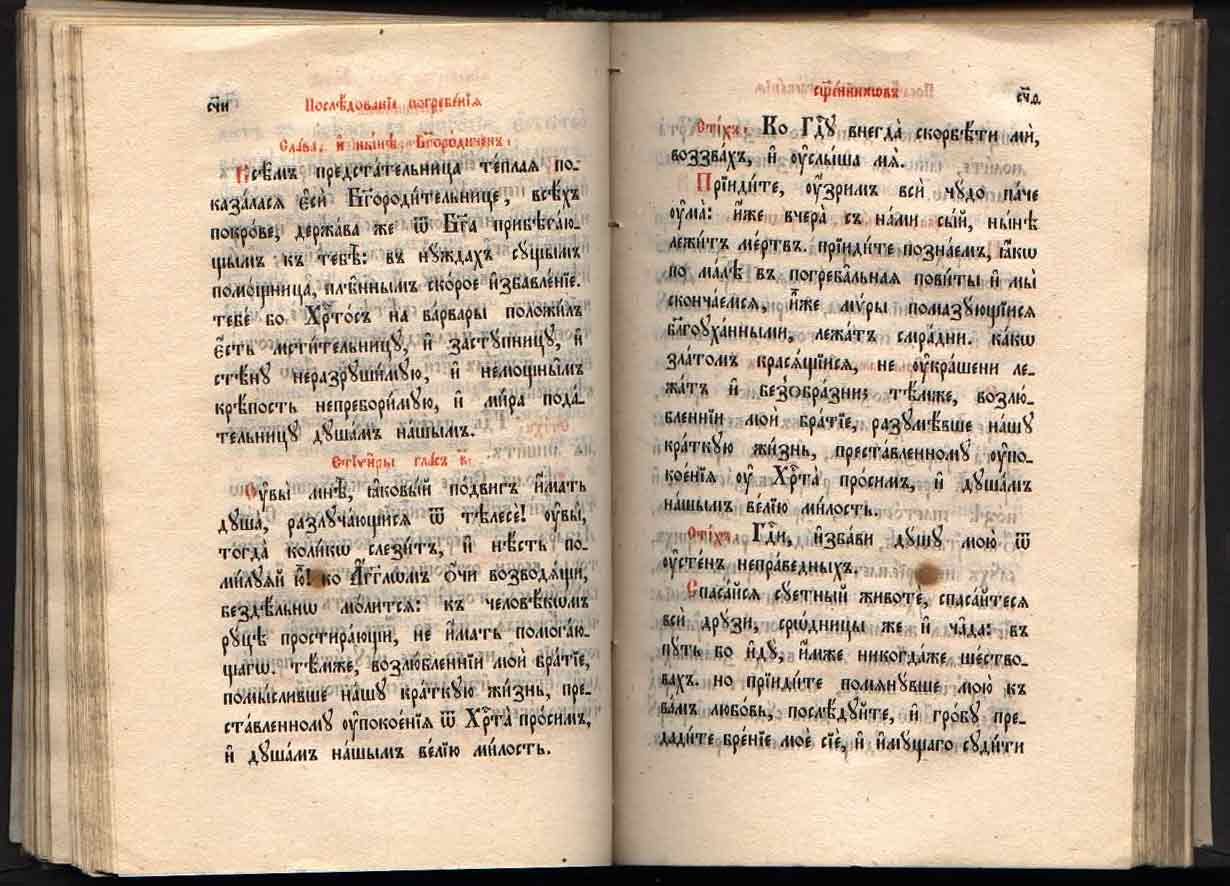 сч҃и
Послѣ́дованїе погребе́нїѧ
Сла́ва, и҆ ны́нѣ, Бг҃оро́диченъ:
Всѣ̑мъ предста́тельница те́плаѧ по-
каза́ласѧ є҆сѝ Бг҃ороди́тельнице, всѣ́хъ
покро́ве, держа́ва же ѿ Бг҃а прибѣга́ю-
щымъ къ тебѣ̀: въ нꙋ́ждахъ сꙋ́щымъ
помо́щница, плѣ́ннымъ ско́рое и҆збавле́нїе.
тебе́ бо Хрⷭ҇то́съ на ва́рвары положи́лъ
є҆́сть мсти́тельницꙋ, и҆ застꙋ́пницꙋ, и҆
стѣ́нꙋ неразрꙋши́мꙋю, и҆ немощны̑мъ
крѣ́пость непребори́мꙋю, и҆ ми́ра пода́-
тельницꙋ дꙋша́мъ на́шымъ.
Стїхи̑ры гла́съ в҃:
Оу҆вы̀ мнѣ̀, ꙗ҆ковы́й по́двигъ и҆́мать
дꙋша̀, разлꙋча́ющисѧ ѿ тѣлесѐ! оу҆вы̀,
тогда̀ коли́кѡ слези́тъ, и҆ нѣ́сть по-
ми́лꙋѧй ю҆̀! ко А҆́гг҃лѡмъ ѻ҆́чи возводѧ́щи,
бездѣ́льнѡ мо́литсѧ: къ человѣ́кѡмъ
рꙋ́цѣ простира́ющи, не и҆́мать помога́ю-
щагѡ. тѣ́мже, возлю́бленнїи моѝ бра́тїе,
помы́сливше на́шꙋ кра́ткꙋю жи́знь, пре-
ста́вленномꙋ оу҆покое́нїѧ ѿ Хрⷭ҇та̀ про́симъ,
и҆ дꙋша́мъ на́шымъ ве́лїю ми́лость.
сщ҃е́нникѡвъ
сч҃ѳ.
Сті́хъ: Ко Гдⷭ҇ꙋ внегда̀ скорбѣ́ти мѝ,
воззва́хъ, и҆ оу҆слы́ша мѧ̀.
Прїиди́те, оу҆́зримъ всѝ чꙋ́до па́че
оу҆ма̀: и҆́же вчера̀ съ на́ми сы́й, ны́нѣ
лежи́тъ ме́ртвъ. прїиди́те позна́емъ, ꙗ҆́кѡ
по ма́лѣ въ погреба́льнаѧ пови́ты и҆ мы̀
сконча́емсѧ, и҆́же мѵ́ры помазꙋ́ющїисѧ
благоꙋха́нными, лежа́тъ смра́дни. ка́кѡ
зла́томъ красѧ́щїисѧ, не оу҆кра́шени ле-
жа́тъ и҆ безѻбра́зни; тѣ́мже, возлю́-
бленнїи моѝ бра́тїе, разꙋмѣ́вше на́шꙋ
кра́ткꙋю жи́знь, преста́вленномꙋ оу҆по-
кое́нїѧ оу҆ Хрⷭ҇та̀ про́симъ, и҆ дꙋша́мъ
на́шымъ ве́лїю ми́лость.
Сті́хъ: Гдⷭ҇и, и҆зба́ви дꙋ́шꙋ мою̀ ѿ
оу҆сте́нъ непра́ведныхъ.
Спаса́йсѧ сꙋ́етный животѐ, спаса́йтесѧ
всѝ дрꙋ́зи, срѡ́дницы же и҆ ча̑да: въ
пꙋ́ть бо и҆дꙋ̀, и҆́мже никогда́же ше́ство-
вахъ. но прїиди́те помѧнꙋ́вше мою̀ къ
ва́мъ любо́вь, послѣ́дꙋйте, и҆ гро́бꙋ пре-
дади́те бре́нїе моѐ сїѐ, и҆ и҆мꙋ́щаго сꙋди́ти